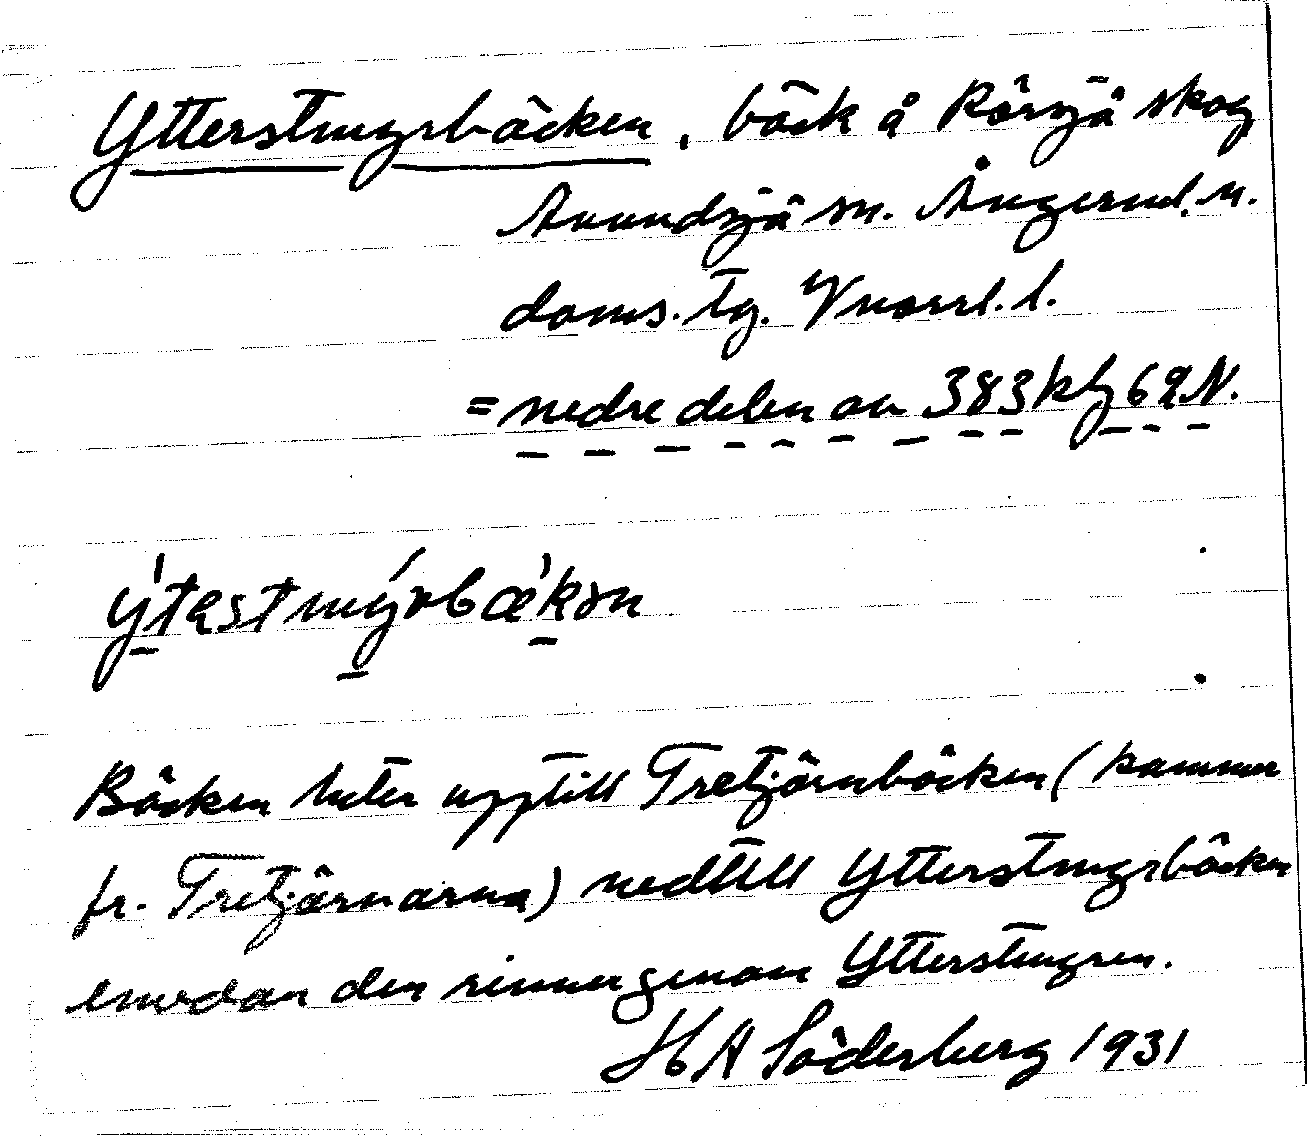 Ytterstmyrbäcken, bäck å Rörsjö skog
Anundsjö sn. Ångerml. n.
doms. tg. Vnorrl. l.
= nedre delen av 383 kbl 62 N.
ýtestmýrbækən
Bäcken heter upptill Tretjärnbäcken (kommer
fr. Tretjärnarna) nedtill Ytterstmyrbäcken
emedan den rinner genom Ytterstmyren.
H A Söderberg 1931